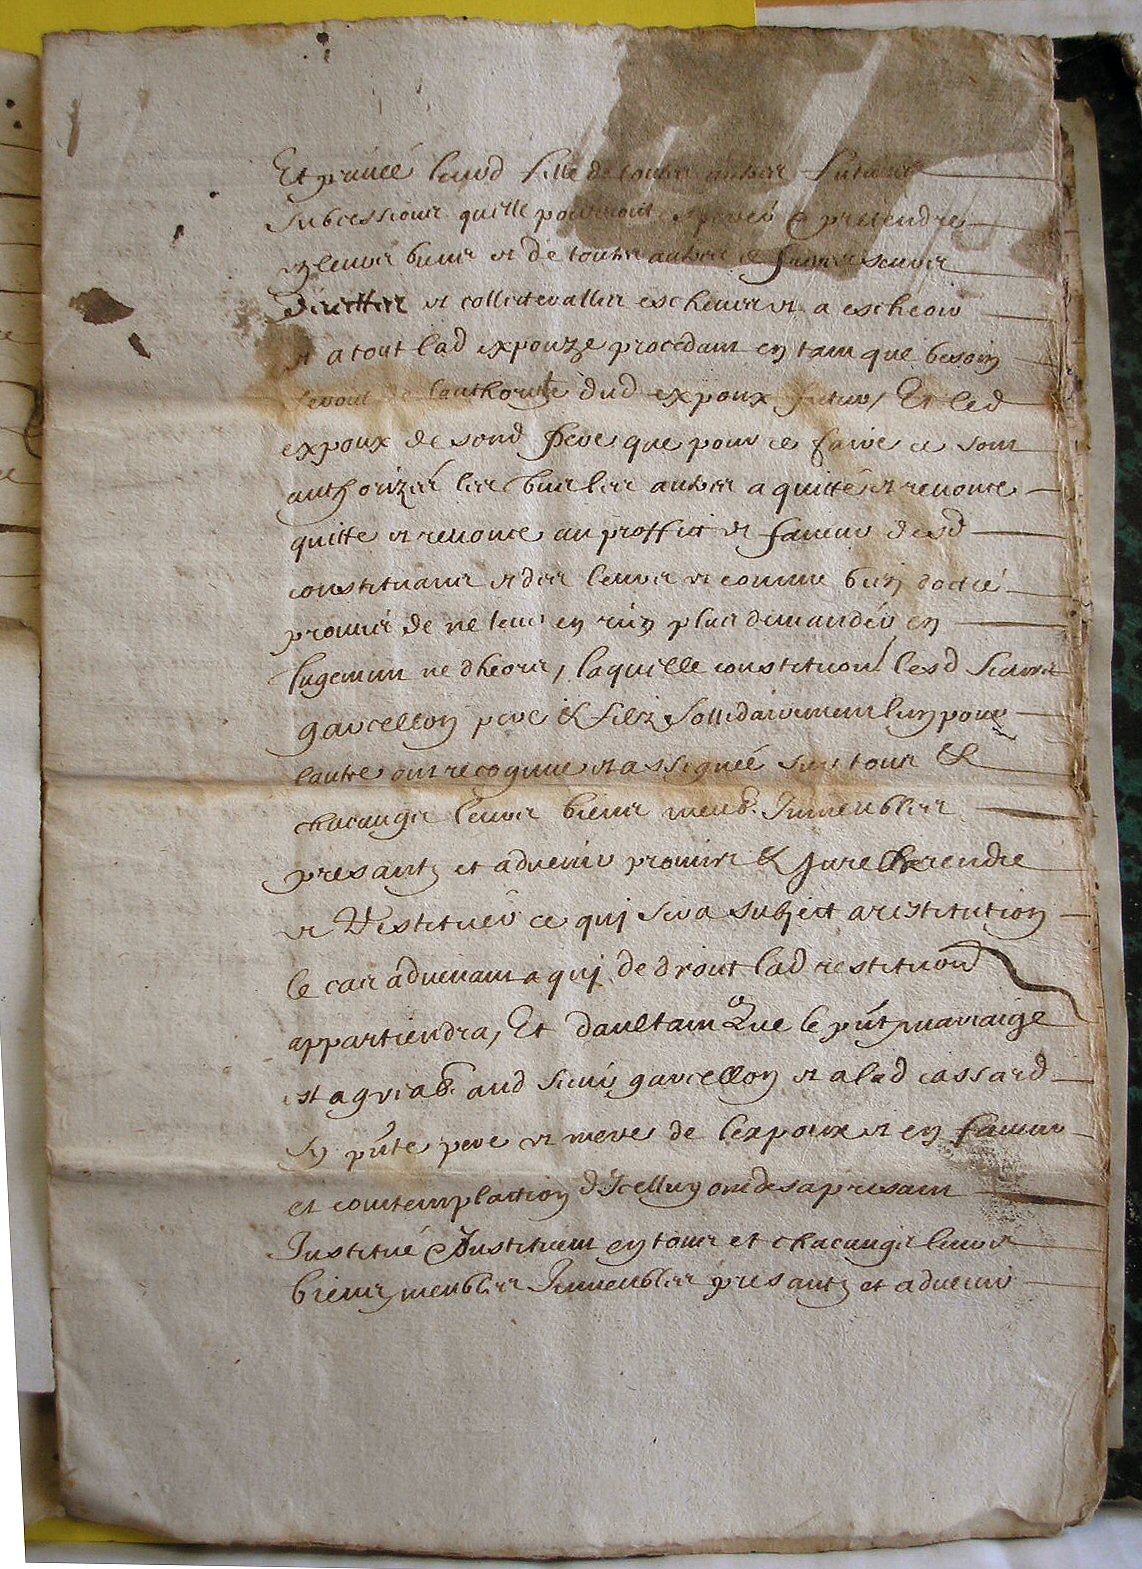 Et privée leurd fille de toutes autres futures
subcessions quelle pourroit esperer & pretendre
ez leurs biens et de toutes autres & freres seurs
directtes et collattevalles escheues et a escheoir
et a tout lad expouze procedant en tant que besoin
seroit de lauthorité dud expoux futur, Et led
expoux de sond pere que pour ce faire ce sont
authorizés les uns les autres a quitté et renonce
quitte et renonce au proffict et faveur desd
constituans et des leurs et comme bien dottée
promis de ne leur en rien plus demander en
Jugement ne dheors, laquelle constitution lesd sieurs
garcellon pere & filz sollidairement lun pour
lautre ont recognue et assignée sur tous &
chacungs leurs biens meub. Immeubles
presantz et advenir promis & juré rendre
et Restituer ce quj sera subject a restitution
le cas advenant a quj de droit lad restitution
appartiendra, Et daultant Que le pnt marraige
est agreab. aud sieur garcellon et a lad cassard
sy pnte pere et mere de lexpoux et en faveur
et contemplation dIcelluy ont des a presant
Institué & Instituent en tous et chacungs leurs
biens meubles Immeubles presantz et advenir